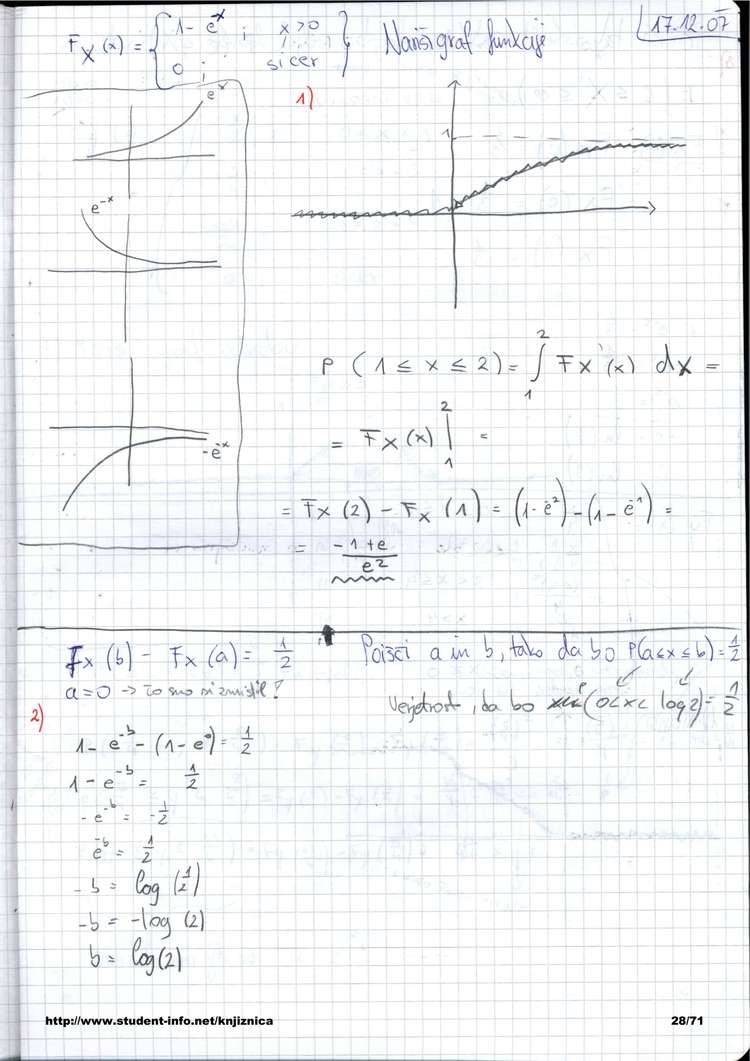 17.12.07
F_X (x) = { 1 - e^-x ; x > 0
0 ; sicer } Nariši graf funkcije
1)
e^x
1
e^-x
-e^-x
P ( 1 ≤ x ≤ 2 ) = ∫_1^2 F_X'(x) dx =
= F_X (x) |_1^2 =
= F_X (2) - F_X (1) = (1 - e^-2) - (1 - e^-1) =
= (-1 + e) / e^2
F_X (b) - F_X (a) = 1/2
Poišči a in b, tako da bo P(a ≤ x ≤ b) = 1/2
a = 0 → to smo si izmislil?
Verjetnost, da bo P (0 < x < log 2) = 1/2
2)
1 - e^-b - (1 - e^0) = 1/2
1 - e^-b = 1/2
- e^-b = - 1/2
e^-b = 1/2
- b = log (1/2)
- b = - log (2)
b = log(2)
http://www.student-info.net/knjiznica
28/71